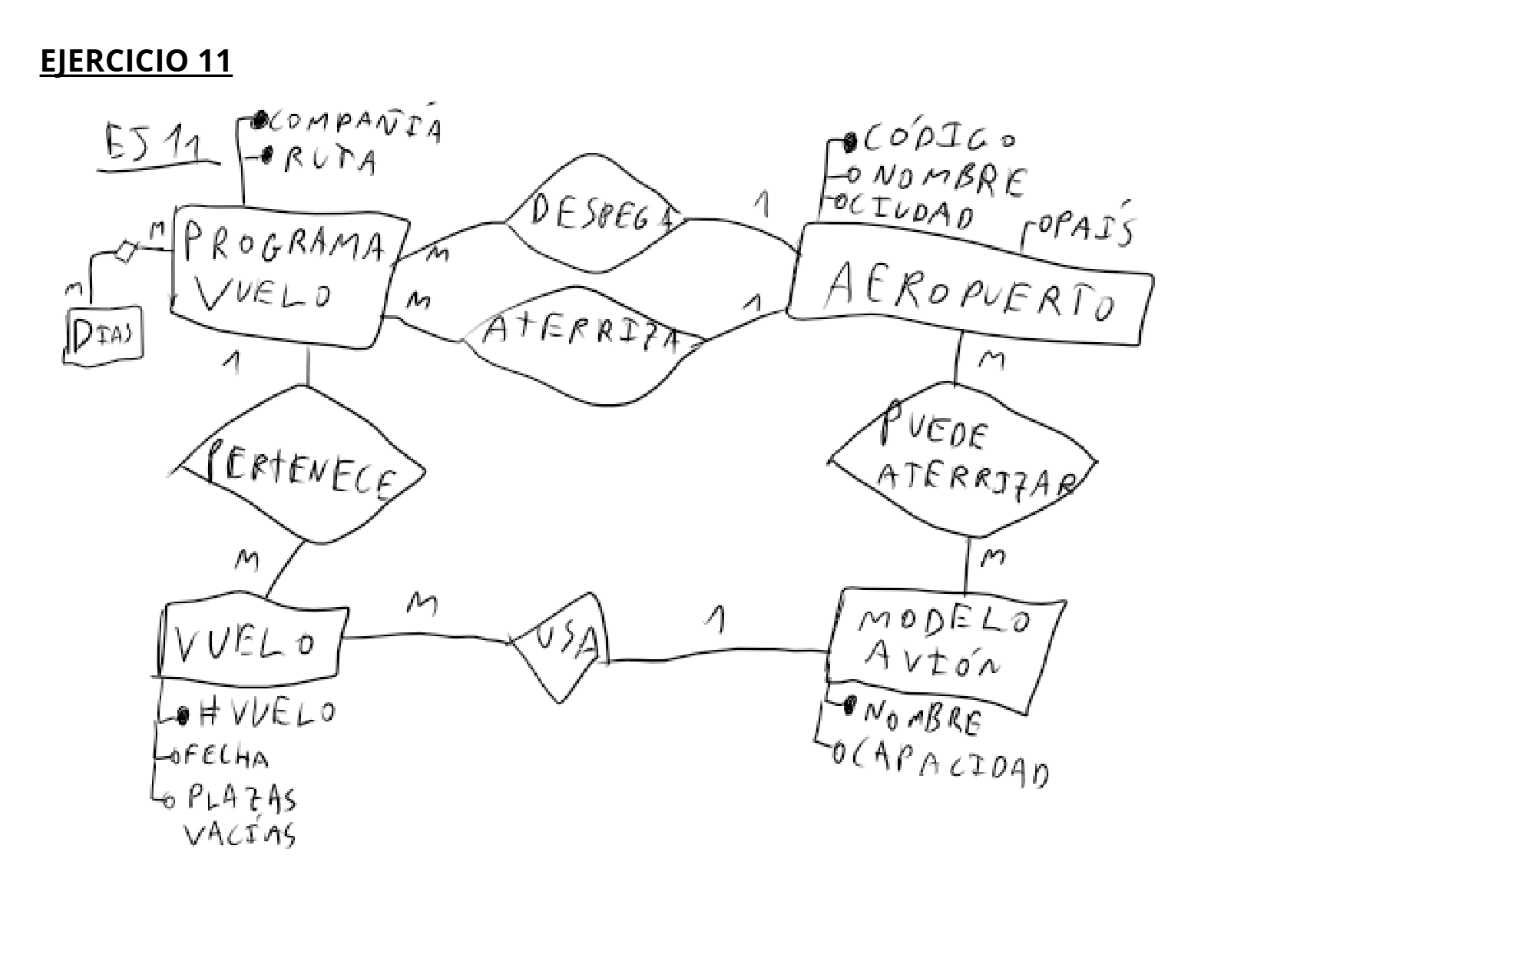 EJERCICIO 11
EJ 11
COMPAÑÍA
RUTA
PROGRAMA
VUELO
M
M
DIAS
M
DESPEGA
1
M
ATERRIZA
1
CÓDIGO
NOMBRE
CIUDAD
PAÍS
AEROPUERTO
1
PERTENECE
M
M
PUEDE
ATERRIZAR
M
VUELO
M
USA
1
MODELO
AVIÓN
# VUELO
FECHA
PLAZAS
VACÍAS
NOMBRE
CAPACIDAD